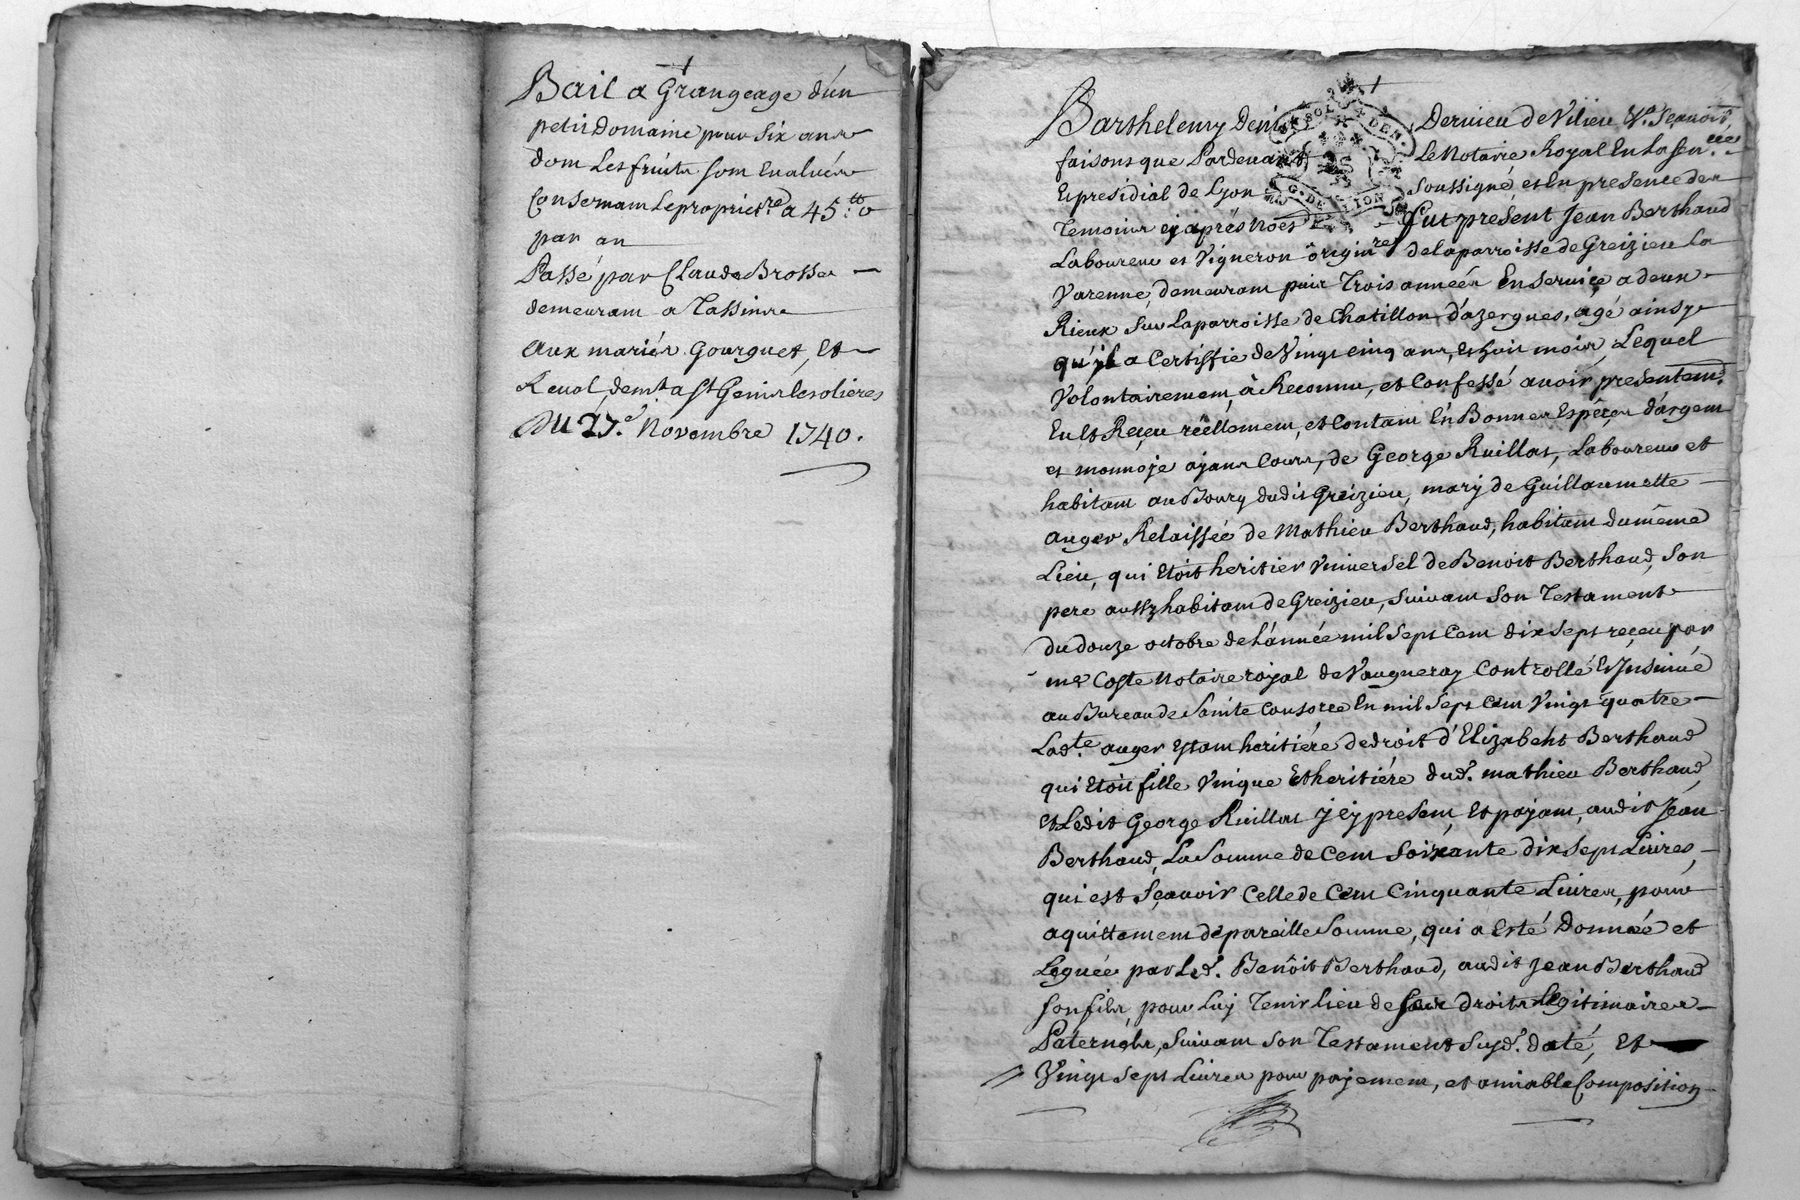 Bail a Grangeage d'un
petit Domaine pour six ans
dont Les fruits sont Evalués
Consernant Le propriet.re a 45.tt
par an
Passé par Claude Brosse
demeurant a Tassin
aux mariés Gourguet, Et
Reval, dem.t a St Genis les olieres
Du 27.e Novembre 1740.
Barthelemy Denis Dervieu de Vilieu V.a Sçavoir
faisons que Pardevant Le Notaire Royal En La sen.cée
Et presidial de Lyon soussigné et En presence des
Temoins cy après Només Fut présent Jean Berthaud
Laboureur et Vigneron origin.re de la parroisse de Greizieu La
Varenne, demeurant puis Trois années En service a deux
Rieux sur La parroisse de Chatillon d'azergues, agé ainsy
qu'il a Certiffié de Vingt cinq ans, et huit mois, Lequel
Volontairement, à Reconnu, et Confessé avoir presentem.t
Eu Et Reçeu réellement, et Contant En Bonnes Espêçes d'argent
et monnoje ajans Cours, de George Ruillat, Laboureur et
habitant au Bourg dudit Greizieu, mary de Guillaumette
auger Relaissée de Mathieu Berthaud, habitant du même
Lieu, qui Etoit heritier Vniversel de Benoit Berthaud, son
pere aussy habitant de Greizieu, suivant son Testament
du douze octobre de L'année mil sept Cent dix sept reçeu par
me Coste Notaire royal de Vaugneray Controllé Et Insinué
au Bureau de Sainte Consorce En mil sept Cent Vingt quatre
Lad.te auger Etant heritiére de droit d'Elizabeht Berthaud
qui Etoit fille Vnique Et heritiére dud.t mathieu Berthaud,
et Ledit George Ruillat j cy present, Et pajant, audit Jean
Berthaud, La Somme de Cent Soixante dix sept Livres,
qui est Sçavoir Celle de Cent Cinquante Livres, pour
aquittement de pareille Somme, qui a Esté Donnée et
Leguée par Led.t Benôit Berthaud, audit Jean Berthaud
son fils, pour Luy Tenir Lieu de ses droits Legitimaires
Paternels, suivant son Testament susd.t daté, Et
Vingt sept Livres pour pajement, et amiable Composition